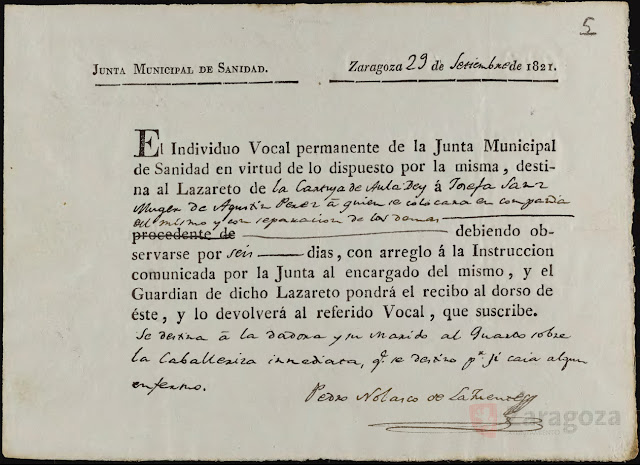 5
JUNTA MUNICIPAL DE SANIDAD. Zaragoza 29 de Setiembre de 1821.
El Individuo Vocal permanente de la Junta Municipal
de Sanidad en virtud de lo dispuesto por la misma, desti-
na al Lazareto de la Cartuja de Aula Dey á Josefa Sanz
Muger de Agustin Perez á quien se colocará en compañia
del mismo y con separacion de los demas
procedente de debiendo ob-
servarse por seis dias, con arreglo á la Instruccion
comunicada por la Junta al encargado del mismo, y el
Guardian de dicho Lazareto pondrá el recibo al dorso de
éste, y lo devolverá al referido Vocal, que suscribe.
Se destina á la dadora y su marido al Quarto sobre
la Caballeriza inmediata, qe. se destinó pa. si caia algun
enfermo.
Pedro Nolasco de Lafuente
Zaragoza